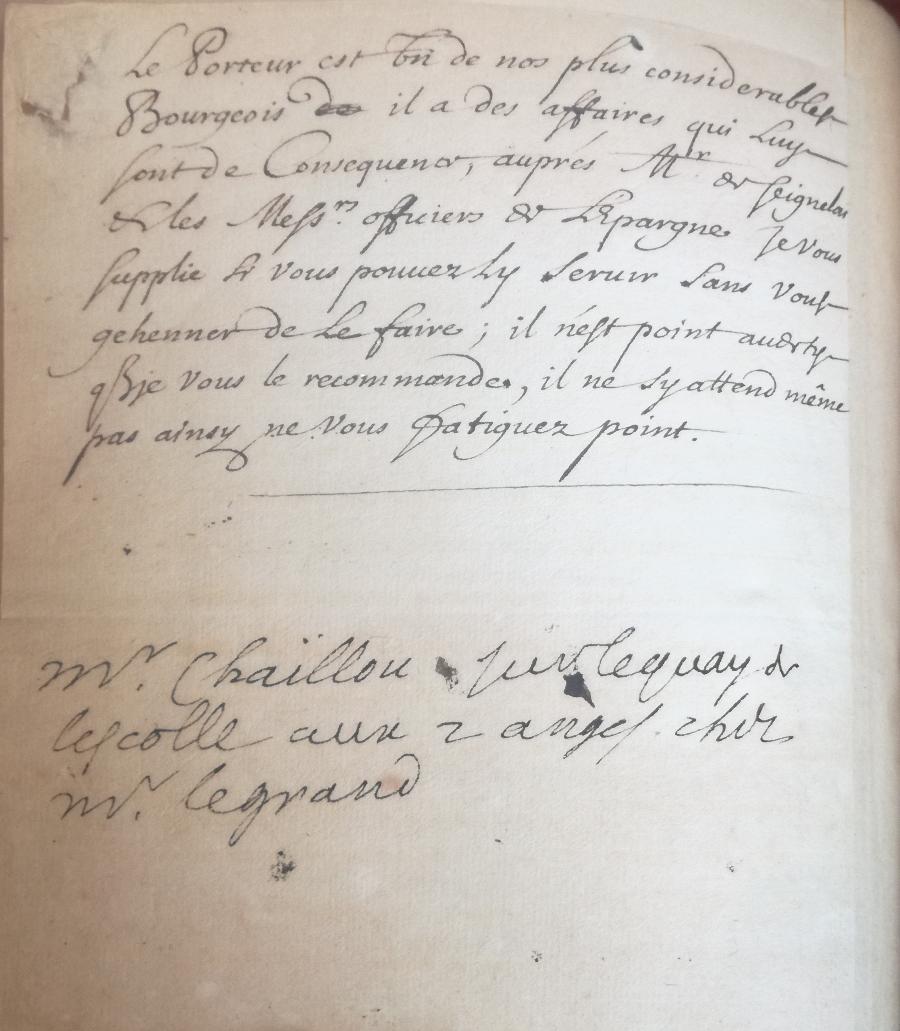 Le Porteur est Un de nos plus considerables
Bourgeois il a des affaires qui Luy
sont de Consequence, auprés Mr de seignelai
& les Messrs officiers de L'Epargne. Je vous
supplie si vous pouuez Ly seruir sans vous
gehenner de Le faire; il n'est point auerty
que je vous le recommande, il ne sy attend même
pas ainsy ne vous fatiguez point.
mr. Chaïllou sur le quay de
lescolle aux 2 anges chez
mr. legrand